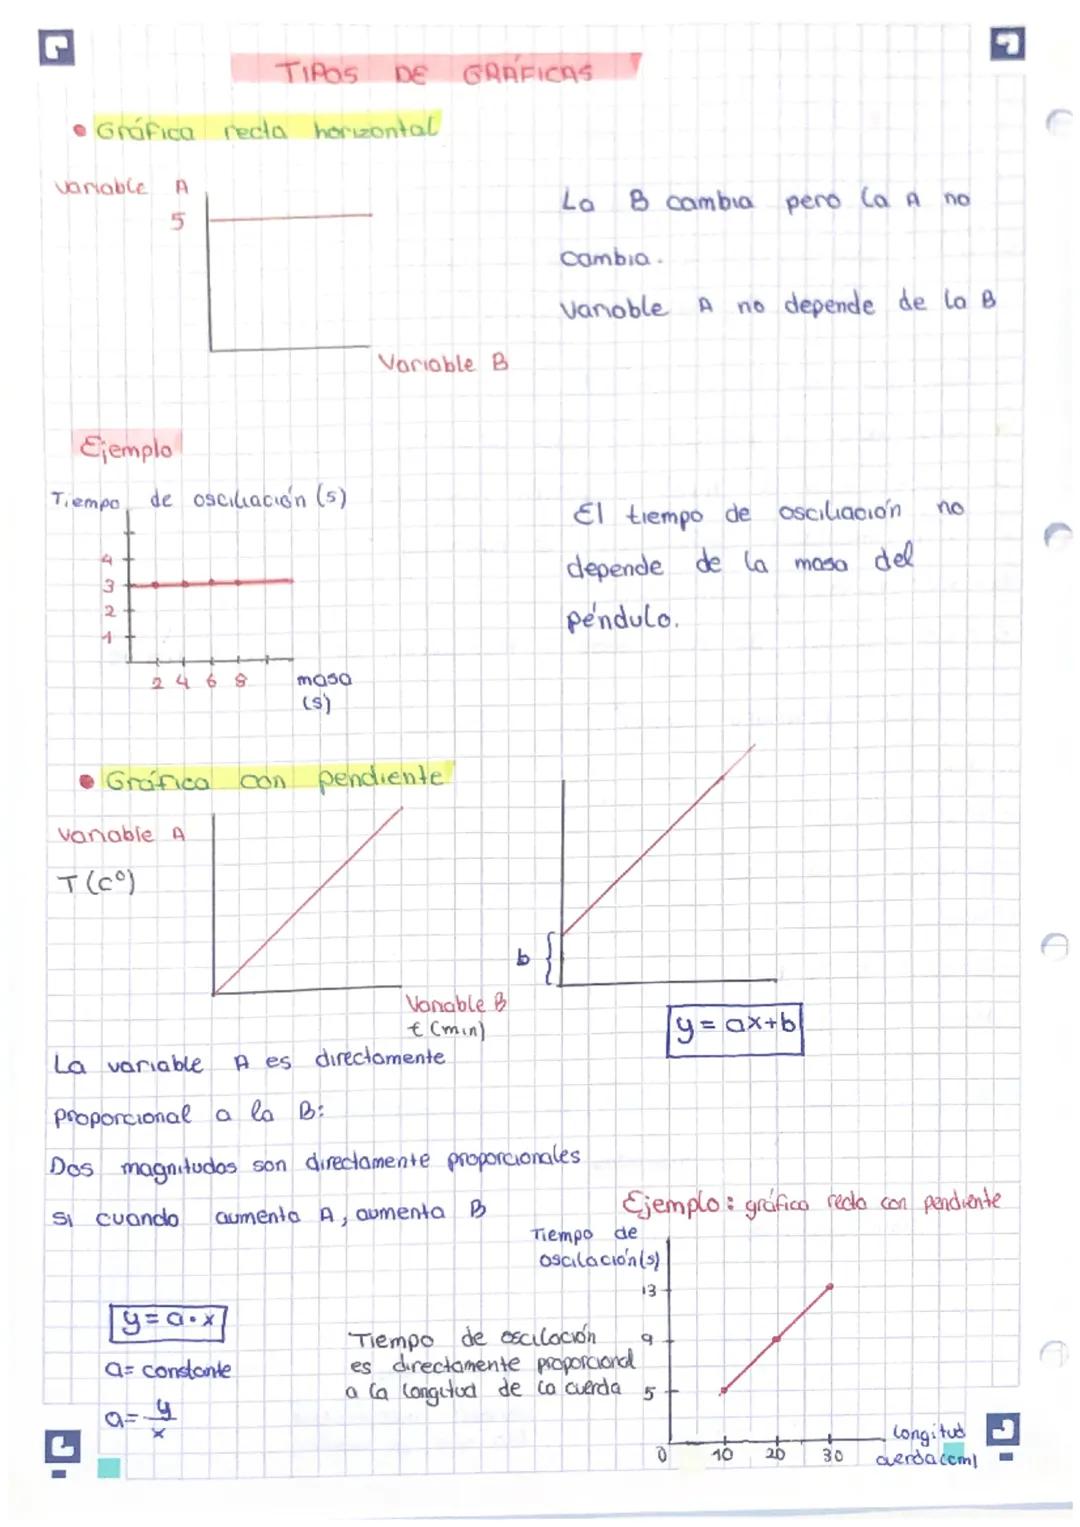 TIPOS DE GRÁFICAS
• Gráfica recta horizontal
variable A
5
Variable B
La B cambia pero la A no
cambia.
Variable A no depende de la B
Ejemplo
Tiempo de osciliación (s)
4
3
2
1
2 4 6 8
masa
(s)
El tiempo de osciliación no
depende de la masa del
péndulo.
• Gráfica con pendiente
Variable A
T (Cº)
Variable B
t (min)
b
y = ax+b
La variable A es directamente
proporcional a la B:
Dos magnitudas son directamente proporcionales
si cuando aumenta A, aumenta B
y = a·x
a= constante
a= y
x
Ejemplo: gráfica recta con pendiente
Tiempo de
oscilación(s)
13
9
5
0
10 20 30
longitud
cuerda(cm)
Tiempo de oscilación
es directamente proporcional
a la longitud de la cuerda